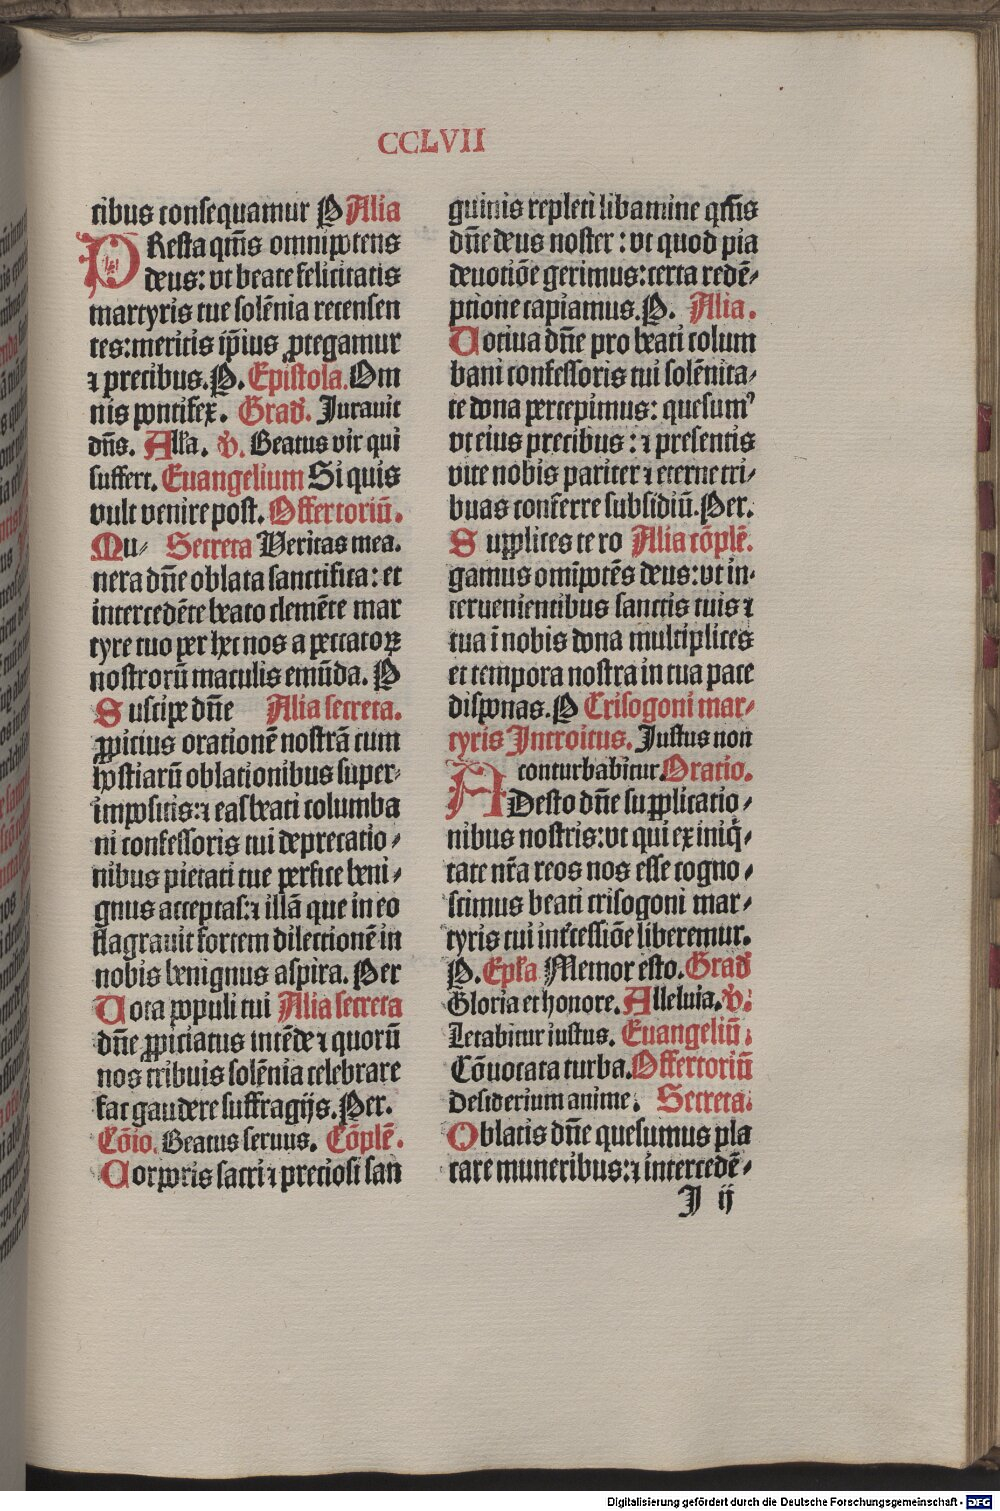 CCLVII
cibus consequamur P Alia
PResta qm̄s omnipotens
deus: vt beate felicitatis
martyris tue solēnia recensen
tes: meritis ip̄ius ꝓtegamur
⁊ precibus. P. Epistola. Om
nis pontifex. Grad̄. Jurauit
dn̄s. Alľa. ℣. Beatus vir qui
suffert. Euangelium Si quis
vult venire post. Offertoriū.
Mu⸗ Secreta Veritas mea.
nera dn̄e oblata sanctifica: et
intercedēte beato clemēte mar
tyre tuo per hec nos a peccatoꝝ
nostrorū maculis emūda. P
Suscipe dn̄e Alia secreta.
ꝓpicius orationē nostrā cum
hostiarū oblationibus super⸗
impositis: ⁊ eas beati columba
ni confessoris tui deprecatio⸗
nibus pietati tue perfice beni⸗
gnus acceptas: ⁊ illā que in eo
flagrauit fortem dilectionē in
nobis benignus aspira. Per
Uota populi tui Alia secreta
dn̄e ꝓpiciatus intēde ⁊ quorū
nos tribuis solēnia celebrare
fac gaudere suffragijs. Per.
Cōio. Beatus seruus. Cōplē.
Corporis sacri ⁊ preciosi san
guinis repleti libamine qm̄s
dn̄e deus noster: vt quod pia
deuotiōe gerimus: certa redē⸗
ptione capiamus. P. Alia.
Uotiua dn̄e pro beati colum
bani confessoris tui solēnita⸗
te dona percepimus: quesumꝰ
vt eius precibus: ⁊ presentis
vite nobis pariter ⁊ eterne tri⸗
buas conferre subsidiū. Per.
Supplices te ro Alia cōplē.
gamus omīpotēs deus: vt in⸗
teruenientibus sanctis tuis ⁊
tua ī nobis dona multiplices
et tempora nostra in tua pace
disponas. P Crisogoni mar⸗
tyris Introitus. Justus non
conturbabitur. Oratio.
ADesto dn̄e supplicatio⸗
nibus nostris: vt qui ex iniq̄⸗
tate nr̄a reos nos esse cogno⸗
scimus beati crisogoni mar⸗
tyris tui int̄cessiōe liberemur.
P. Epľa Memor esto. Grad̄
Gloria et honore. Alleluia. ℣.
Letabitur iustus. Euangeliū.
Cōuocata turba. Offertoriū
Desiderium anime. Secreta.
Oblatis dn̄e quesumus pla
care muneribus: ⁊ intercedē⸗
J ij
Digitalisierung gefördert durch die Deutsche Forschungsgemeinschaft - DFG